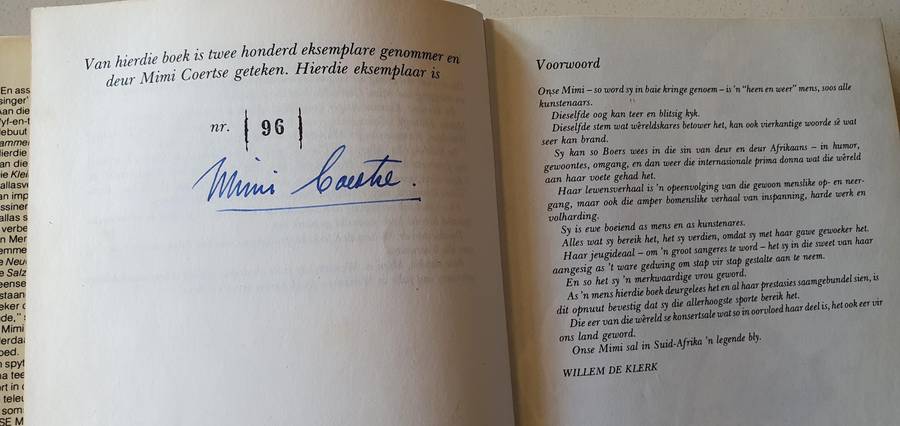 'En ass
singer'
an die
yf-en-t
debuut
amme
ierdie
an die
ie Klei
allasv
an imp
ssiner
allas s
verbe
n Mer
emme
e Neu
e Salz
eense
staan
eker d
de," s
Mimi
erdaa
oed.
n spyt
na tee
ort in d
teleu
som
SE M
Van hierdie boek is twee honderd eksemplare genommer en
deur Mimi Coertse geteken. Hierdie eksemplaar is
nr. 96
Mimi Coertse.
Voorwoord
Onse Mimi – so word sy in baie kringe genoem – is 'n "heen en weer" mens, soos alle
kunstenaars.
Dieselfde oog kan teer en blitsig kyk.
Dieselfde stem wat wêreldskares betower het, kan ook vierkantige woorde sê wat
seer kan brand.
Sy kan so Boers wees in die sin van deur en deur Afrikaans – in humor,
gewoontes, omgang, en dan weer die internasionale prima donna wat die wêreld
aan haar voete gehad het.
Haar lewensverhaal is 'n opeenvolging van die gewoon menslike op- en neer-
gang, maar ook die amper bomenslike verhaal van inspanning, harde werk en
volharding.
Sy is ewe boeiend as mens en as kunstenares.
Alles wat sy bereik het, het sy verdien, omdat sy met haar gawe gewoeker het.
Haar jeugideaal – om 'n groot sangeres te word – het sy in die sweet van haar
aangesig as 't ware gedwing om stap vir stap gestalte aan te neem.
En so het sy 'n merkwaardige vrou geword.
As 'n mens hierdie boek deurgelees het en al haar prestasies saamgebundel sien, is
dit opnuut bevestig dat sy die allerhoogste sporte bereik het.
Die eer van die wêreld se konsertsale wat so in oorvloed haar deel is, het ook eer vir
ons land geword.
Onse Mimi sal in Suid-Afrika 'n legende bly.
WILLEM DE KLERK